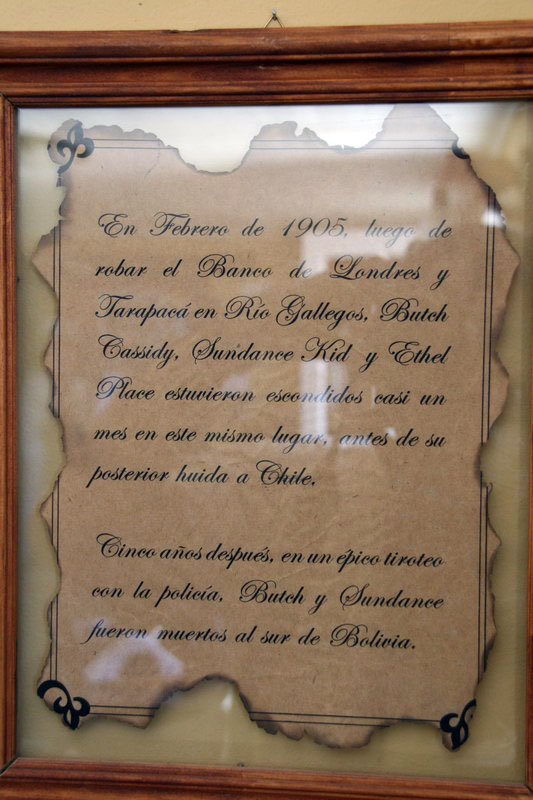 En Febrero de 1905, luego de
robar el Banco de Londres y
Tarapacá en Río Gallegos, Butch
Cassidy, Sundance Kid y Ethel
Place estuvieron escondidos casi un
mes en este mismo lugar, antes de su
posterior huida a Chile.
Cinco años después, en un épico tiroteo
con la policía, Butch y Sundance
fueron muertos al sur de Bolivia.